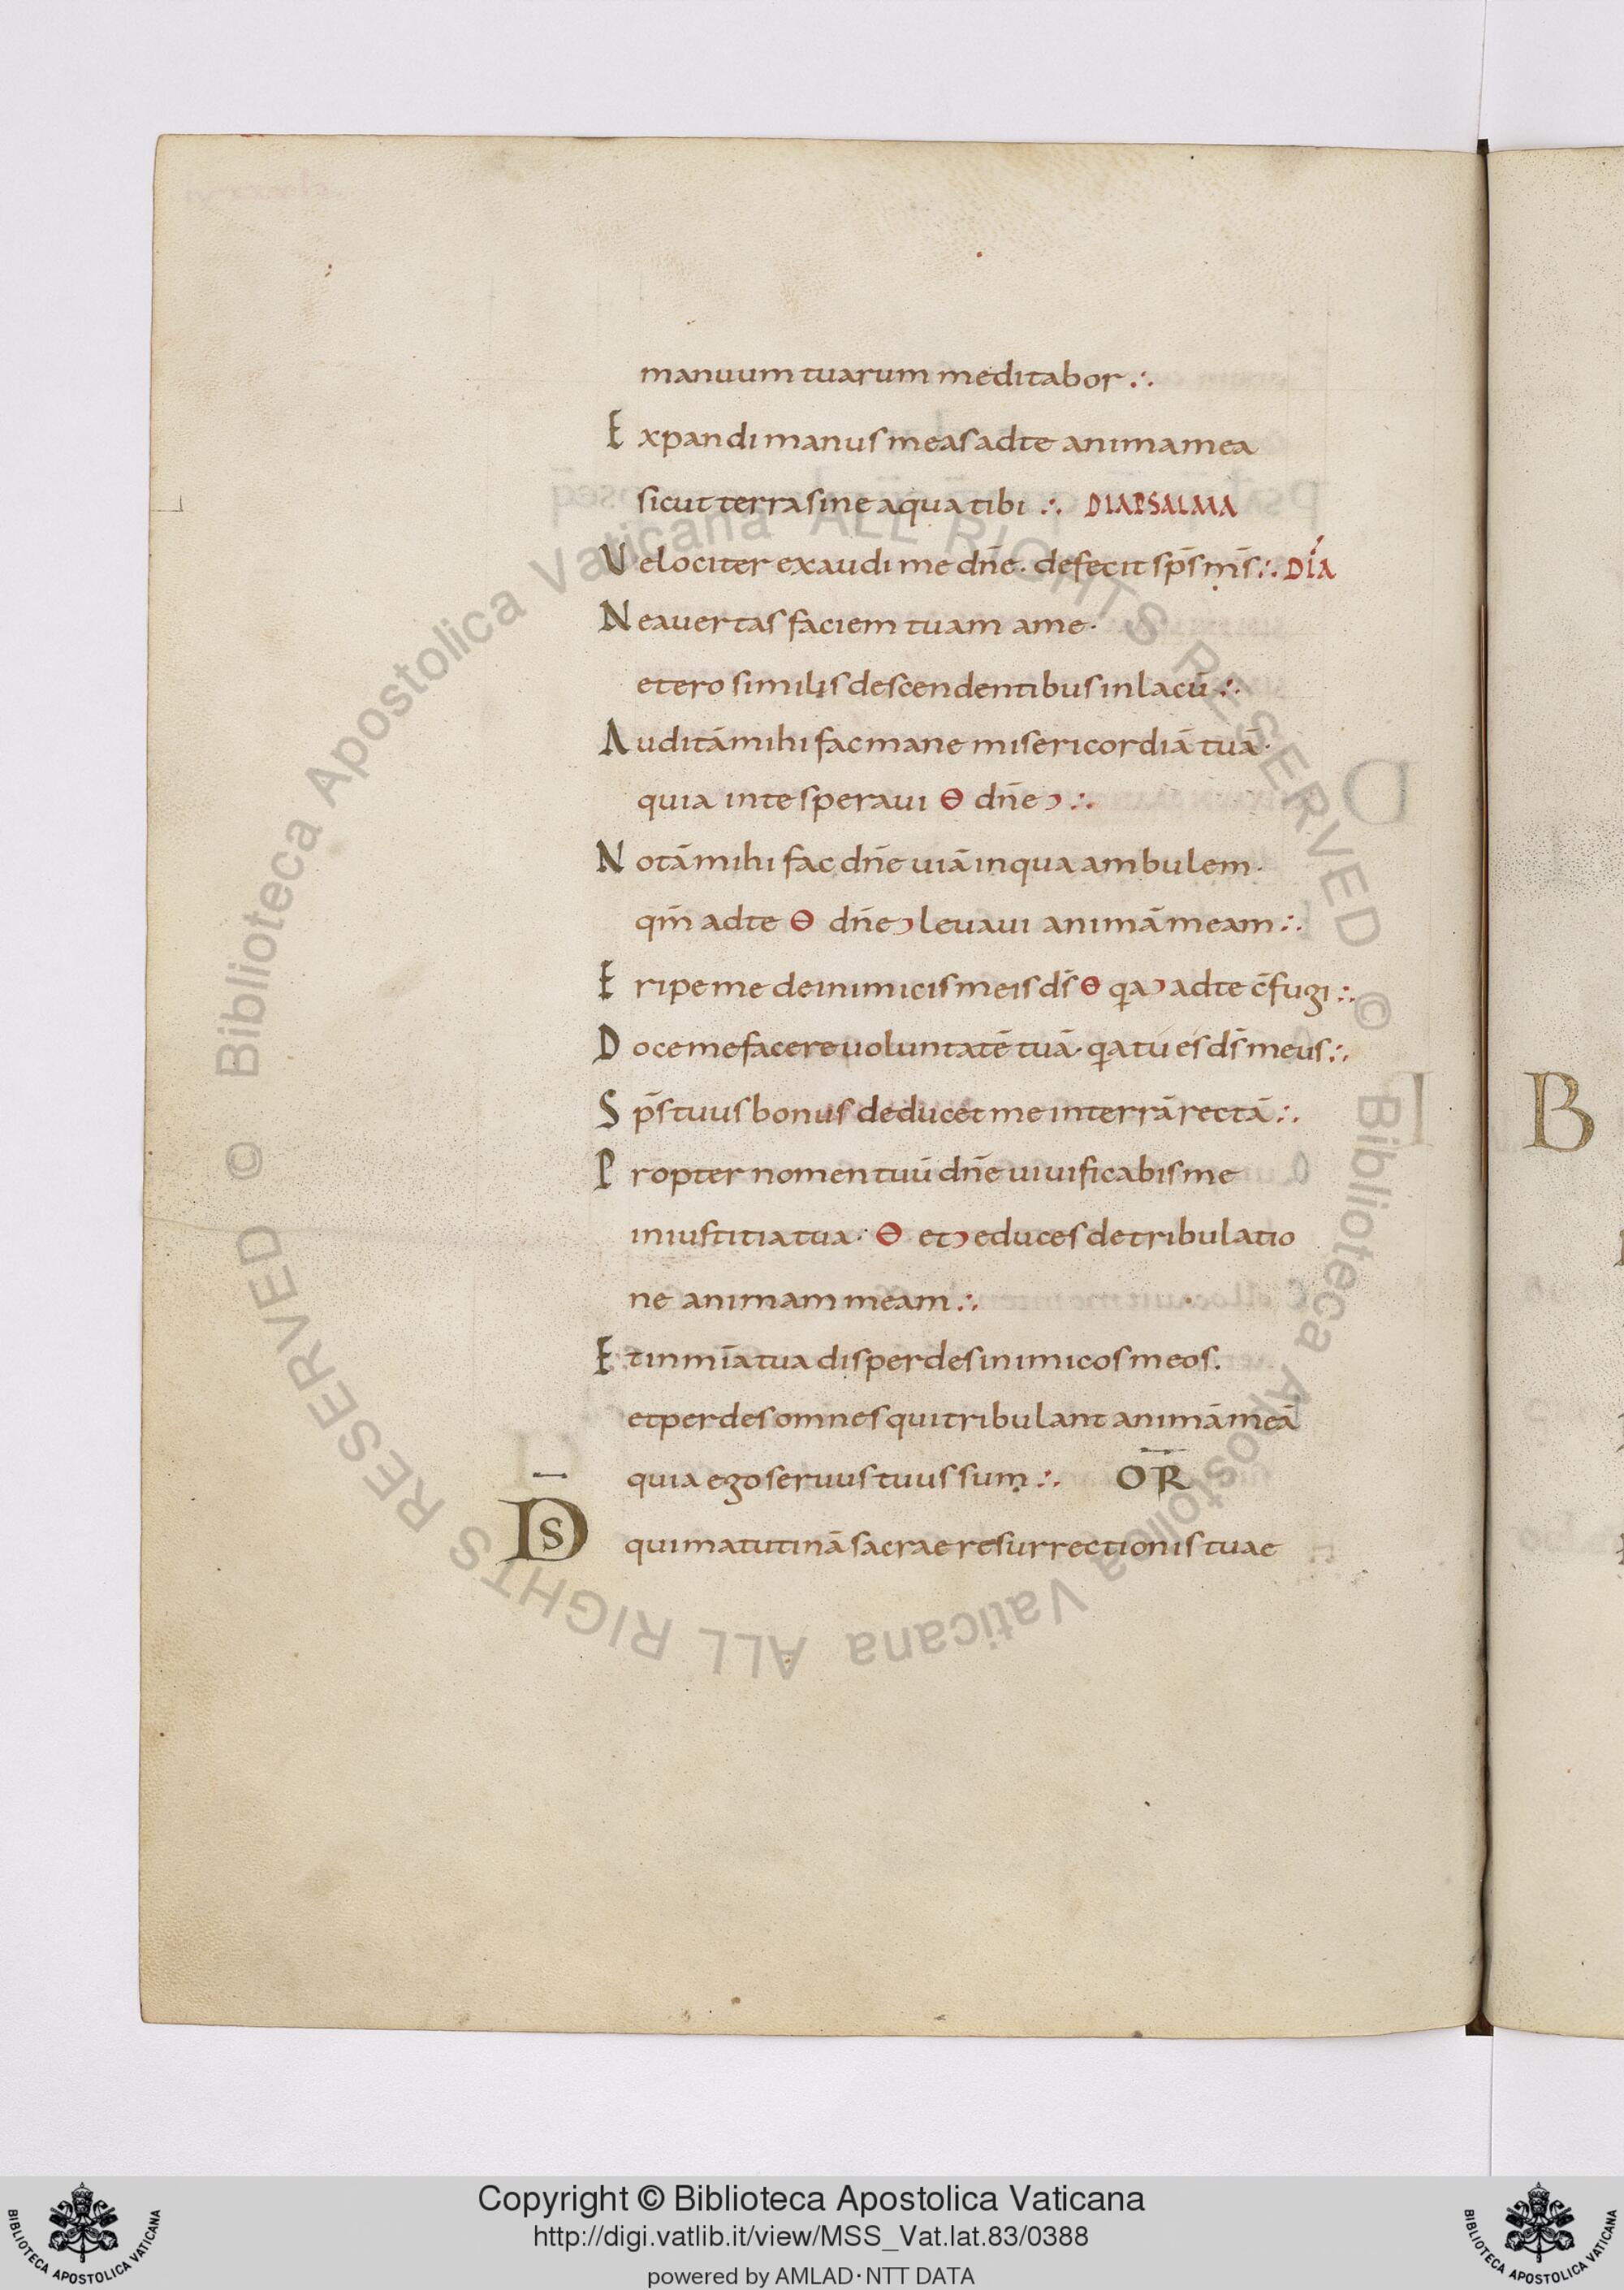 manuum tuarum meditabor ∴
Expandi manus meas ad te anima mea
sicut terra sine aqua tibi ∴ DIAPSALMA
Velociter exaudi me dn̄e · defecit sp̄s m̄s ∴ DIA
Ne avertas faciem tuam a me ·
et ero similis descendentibus in lacū ∴
Auditā mihi fac mane misericordiā tuā ·
quia in te speraui Θ dn̄e ∴
Notā mihi fac dn̄e uiā in qua ambulem ·
qm̄ ad te Θ dn̄e leuaui animā meam ∴
Eripe me de inimicis meis d̄s Θ qa ad te c̄fugi ∴
Doce me facere uoluntatē tuā · qa tu es d̄s meus ∴
Sp̄s tuus bonus deducet me in terrā rectā ∴
Propter nomen tuū dn̄e uiuificabis me
in iustitia tua · Θ et educes de tribulatio
ne animam meam ∴
Et in mīa tua disperdes inimicos meos .
et perdes omnes qui tribulant animā meā
quia ego seruus tuus sum ∴ OR̄
D̄s qui matutinā sacrae resurrectionis tuae
B
© Biblioteca Apostolica Vaticana ALL RIGHTS RESERVED © Biblioteca Apostolica Vaticana ALL RIGHTS RESERVED
Copyright © Biblioteca Apostolica Vaticana
http://digi.vatlib.it/view/MSS_Vat.lat.83/0388
powered by AMLAD · NTT DATA
BIBLIOTECA APOSTOLICA VATICANA
BIBLIOTECA APOSTOLICA VATICANA